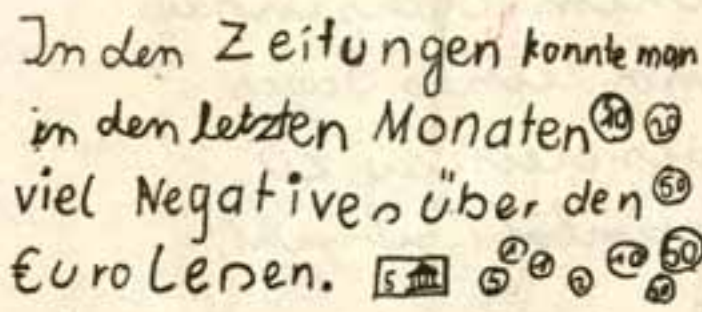 In den Zeitungen konnte man
in den letzten Monaten 20 20
viel Negatives über den 50
€uro Lesen. 5 5 1 1 2 10 50